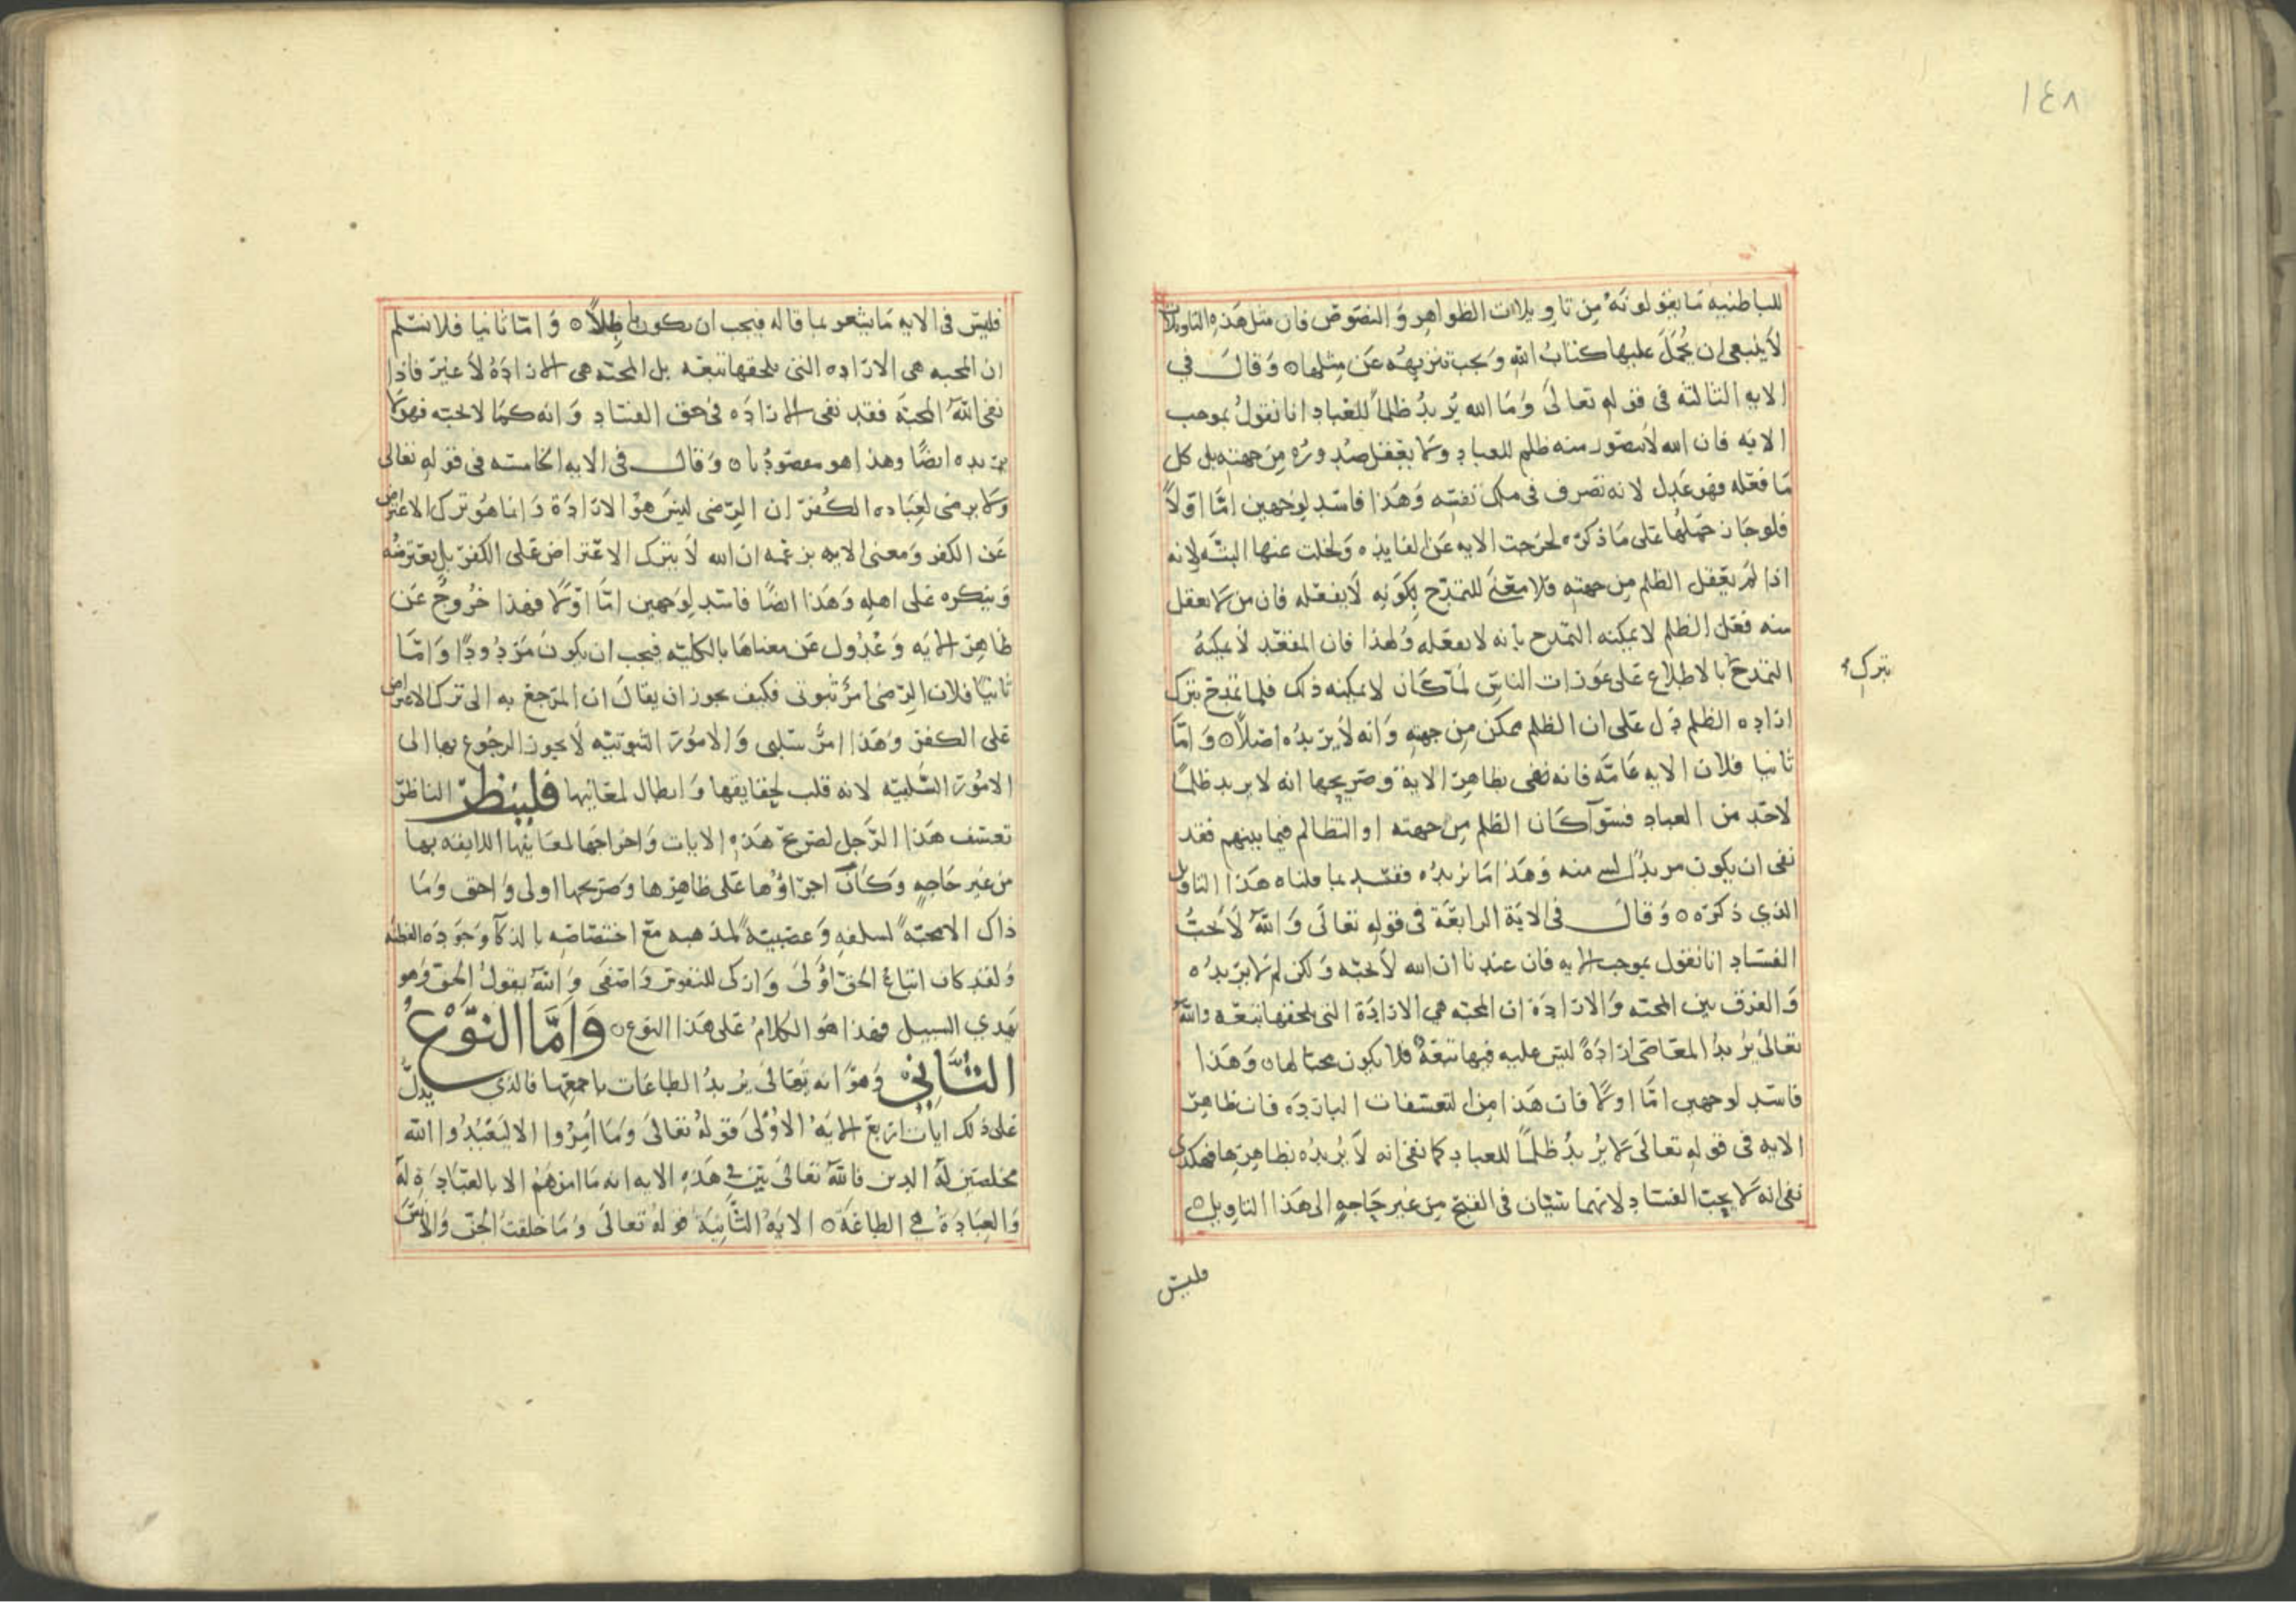 ١٤٨
للباطنيه مَا يقولونَهُ مِن تاويلات الظواهِر وَالنصَوصَ فان مثل هَذِه التاويلات
لاَ ينبعى ان يُحمَلَ عليها كتابُ اللهِ وَ يجب تنزيهُه عَن مِثلها ٥ وَقالَ في
الايهِ الثالثه فى قولهِ تعالىَ وَمَا الله يُريدُ ظلماً للعباد انا نقولُ بموجب
الايَه فان الله لاَ يتصَوَر منه ظلم للعباد وَلا يعقل صُدورُه مِن جهتِه بل كل
مَا فعَله فهو عَدل لانه تصَرف فى ملك نفسِه وَهَذا فاسد لِوَجهين امّا اوّلاً
فلو جَاز حَملهُا عَلى مَا ذكرَه لخرَجت الايه عَن الفايده وَلخلت عنها البتَه لانه
اذا لمَ يعقل الظلم مِن جهتهِ فلا معَنىَ للتمدّح بِكَونِهِ لاَ يفعَله فان من لا يعقل
منه فعَل الظلم لا يمكنه التمدح بأنه لا يفعَله وَلهذا فان المقعَد لاَ يمكنهُ
التمَدحَ بالاطلاع عَلى عَوَرَات الناسِ لمَّا كَان لا يمكنه ذلك فلما تمدّح بترك
بترك
ارَاده الظلم دَل عَلى ان الظلم ممكن مِن جهتهِ وَانه لاَ يريدُه اصَلاً ٥ وَامّا
ثانيا فلان الايه عَامّه فانه نفى بظاهِر الاية وَصَريحِها انه لا يريد ظلمًا
لاحَدٍ من العباد فسَوآ كَان الظلم مِن جهته او التظالم فيما بينهم فقد
نفى ان يكون مريدًا لشىء منه وَهَذا مَا نريدُه ففسَد بما قلناه هَذا التاويل
الذي ذكرَه ٥ وَقالَ فى الايَة الرابعَة فى قولهِ تعَالىَ وَاللهُ لاَ يُحبُّ
الفسَاد انا نقول بموجب الايه فان عندنا ان الله لاَ يحبّه وَلكن لم لا يريدُه
وَالفرق بين المحبّه وَالارَادَة ان المحبّه هي الارَادَة التى يلحقها تبعَه وَاللهُ
تعالىَ يُريدُ المعَاصَى ارَادَةً ليسَ عليه فيها تبعَةٌ فلا يكون محبّا لها ٥ وَهَذا
فاسَد لوجهين امَّا اوّلاً فان هَذا مِن التعسّفات البارَدَه فان ظاهِرَ
الايه فى قولهِ تعالىَ لاَ يُريدُ ظلمًا للعباد كما نفى انه لاَ يُريدُه بظاهِرِها فهكذى
نفى انه لاَ يحبّ الفسَاد لانهما سَيّان فى القبَح مِن غيرِ حَاجهٍ الى هَذا التاويل ٥
فليسَ
فليسَ فى الايهِ مَا يشعر بما قاله فيجب ان يكون باطِلاً ٥ وَامّا ثانيا فلا نسَلم
ان المحبه هى الارَاده التى يلحقها تبعَه بل المحبّه هى الارَادَهُ لاَ غيرَ فاذا
نفى اللهُ المحبّه فقد نفى الارَادَه فى حق الفسَاد وَانه كمَا لا يحبّه فهو لا
يريده ايضًا وهذا هو مقصَودُنا ٥ وَقالَ فى الايهِ الخامسَه فى قولهِ تعَالى
وَلا يرضى لعبَاده الكُفرَ ان الرِّضى ليسَ هوُ الارَادَة وَانما هوُ ترك الاعترَاض
عَن الكفر وَمعنى الايه بزعمه ان الله لاَ يترك الاعَتراض عَلى الكفرَ بل يعترضُه
وَينكره عَلى اهلهِ وَهَذا ايضًا فاسَد لِوَجهين امّا اوّلاً فهذا خُروجٌ عَن
ظاهِرَ الايَه وَعُدُول عَن معناهَا بالكليّه فيجب ان يكونَ مَردُودًا وَامَّا
ثانيًا فلان الرِّضى امرٌ ثبوتى فكيف يجوز ان يقالَ ان المرَجعَ به الى ترك الاعترَاض
عَلى الكفر وَهَذا امرٌ سَلبى وَالامُورَ الثبوتيّه لاَ يجوز الرجُوع بها الى
الامُورَ السَّلبيّه لانه قلب لحِقايقها وَابطال لمعَانيها فَليَنظُرْ الناظرُ
تعسّف هَذا الرَّجل لصَريحَ هَذهِ الايات وَاخرَاجَها لمعَانيها اللايقه بها
من غيرِ حَاجهٍ وَكَانَ اجرَاؤُها عَلى ظاهِرِها وَصَريحها اولى وَاحق وَمَا
ذاك الا محبّةً لسلفهِ وَعصَبيّةً لمذهبهِ مَعَ اختصَاصَهِ بالذكآ وَجَودَةِ الفطنَه
وَلقد كان اتباعُ الحَق اوُلىَ وَازكى للنفوسِ وَاصَفى وَاللهُ يقولُ الحَق وَهو
يهَدي السبيل فهذا هَو الكلامُ عَلى هَذا النوع ٥ وَامَّا النَّوْعُ
الثَّانِي وَهوَ انه تعَالىَ يُريدُ الطاعَات باجمعِها فالذي يدلُّ
عَلى ذلك ايات اربَع الايَهُ الاوُلىَ قولهُ تعَالىَ وَمَا امُروُا الا ليَعبُدُوا الله
مخلصَين لهُ الدين فاللهُ تعَالىَ بيّن فى هَذهِ الايهِ انه مَا امرَهَمُ الا بالعبَادَةِ لهُ
وَالعبَادَةُ هى الطاعَة ٥ الايَهُ الثَّانيَة قولهُ تعَالىَ وَمَا خلقتُ الجنَّ وَالانسَ